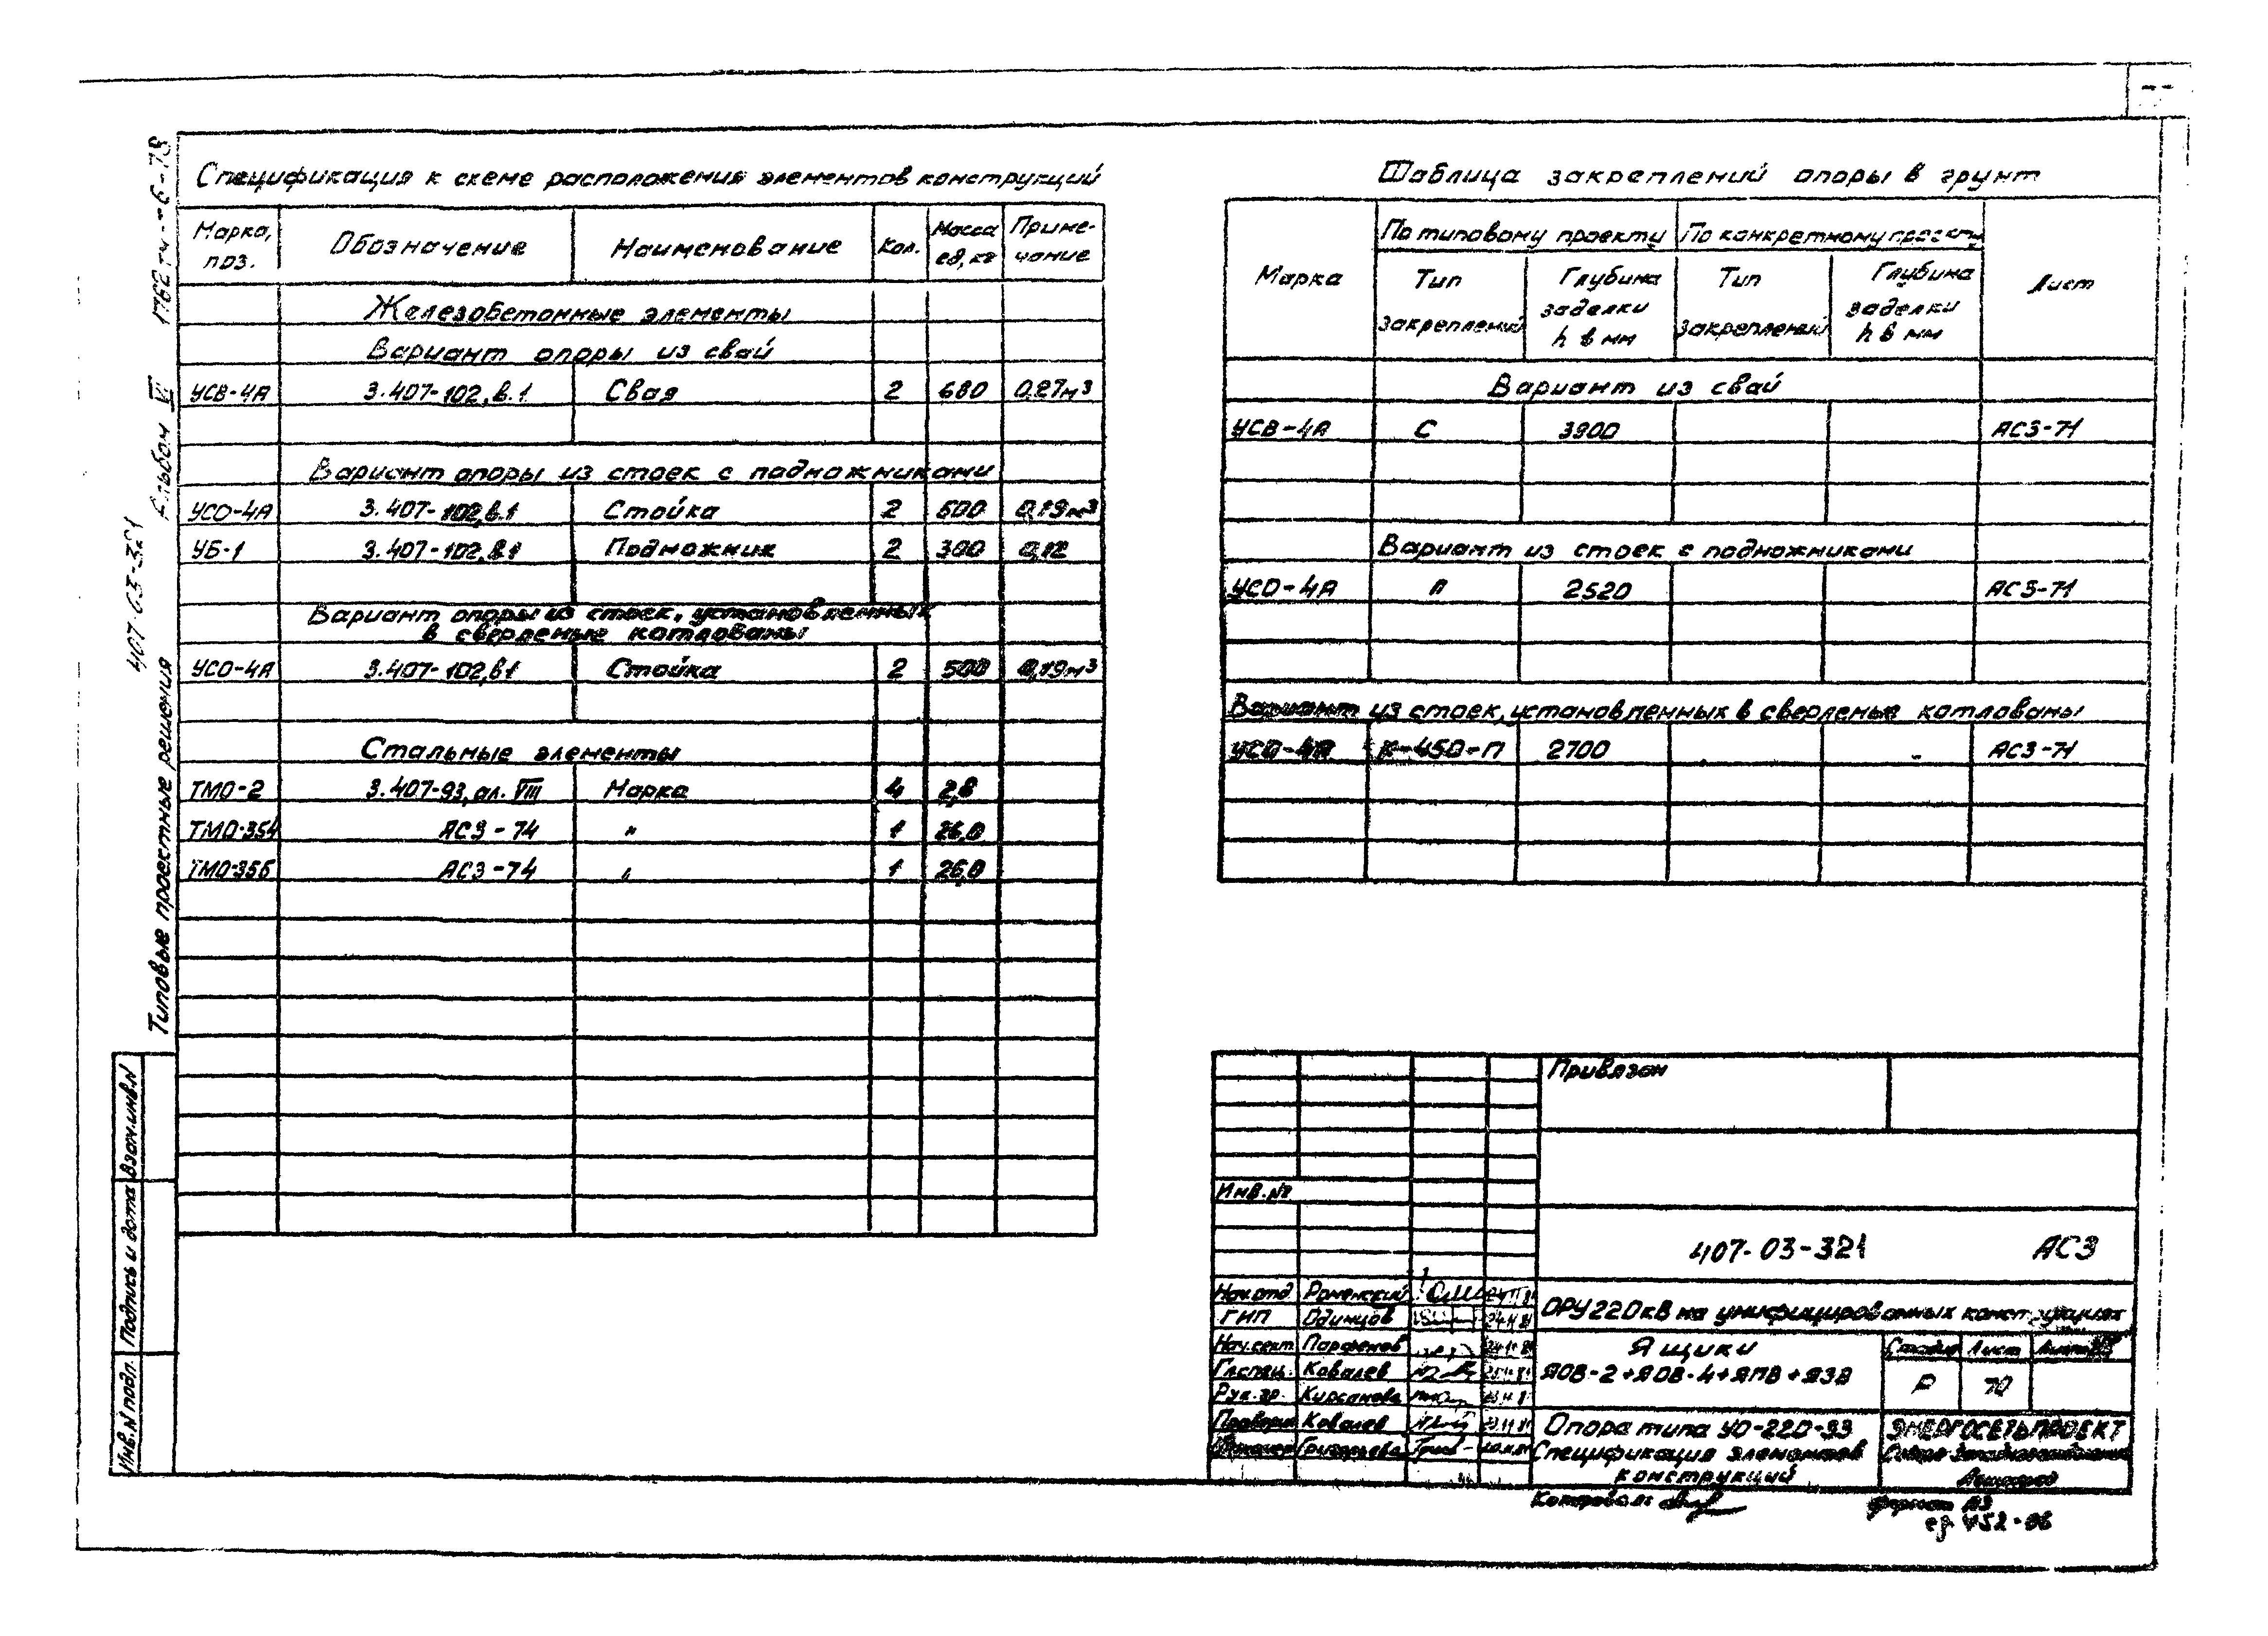 Спецификация к схеме расположения элементов конструкций
Марка, поз. Обозначение Наименование Кол. Масса ед, кг Приме-чание
Железобетонные элементы
Вариант опоры из свай
УСВ-4А 3.407-102, в.1 Свая 2 680 0,27м³
Вариант опоры из стоек с подножниками
УСО-4А 3.407-102,в.1 Стойка 2 500 0,19м³
УБ-1 3.407-102,в1 Подножник 2 300 0,12
Вариант опоры из стоек, установленных
в сверленые котлованы
УСО-4А 3.407-102,в1 Стойка 2 500 0,19м³
Стальные элементы
ТМО-2 3.407-93, ал. VIII Марка 4 2,8
ТМО-354 АС3-74 " 1 26,0
ТМО-355 АС3-74 " 1 26,0
Таблица закреплений опоры в грунт
Марка По типовому проекту По конкретному проекту Лист
Тип закреплений Глубина заделки h в мм Тип закреплений Глубина заделки h в мм
Вариант из свай
УСВ-4А С 3900 АС3-71
Вариант из стоек с подножниками
УСО-4А П 2520 АС3-71
Вариант из стоек, установленных в сверленые котлованы
УСО-4А К-450-П 2700 АС3-71
Типовые проектные решения
407-03-321
Альбом VI
Взам.инв.N
Подпись и дата
Инв.N подл.
Привязан
Инв.№
407-03-321 АС3
Нач.отд Роменский
ГИП Одинцов
ОРУ 220кВ на унифицированных конструкциях
Нач.сект Парфенов
Гл.спец. Ковалев
Рук.гр. Кирсанова
Проверил Ковалев
Григорьева
Ящики
ЯОВ-2+ЯОВ-4+ЯПВ+ЯЗВ
Стадия Лист Листов
Р 70
Опора типа УО-220-33
Спецификация элементов
конструкций
ЭНЕРГОСЕТЬПРОЕКТ
Северо-Западное отделение
Ленинград
Формат А3